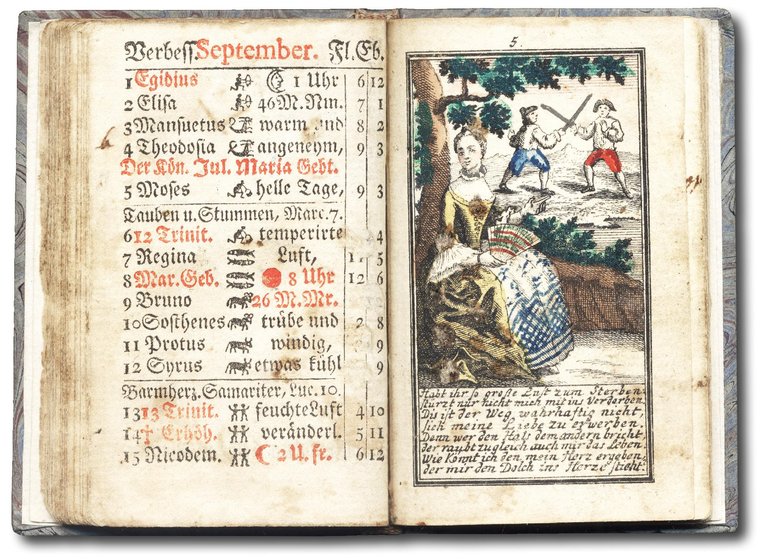 Verbess. September. Fl. Eb.
1 Egidius ☾ 1 Uhr 6 12
2 Elisa 46 M. Nm. 7 1
3 Mansuetus warm und 8 2
4 Theodosia angeneym, 9 3
Der Kön. Jul. Maria Gebt.
5 Moses helle Tage, 9 3
Tauben u. Stummen, Marc. 7.
6 12 Trinit. temperirte 4
7 Regina Luft, 11 5
8 Mar. Geb. 8 Uhr 12 6
9 Bruno 26 M. Mr.
10 Sosthenes trübe und 2 8
11 Protus windig, 9
12 Syrus etwas kühl 9
Barmherz. Samariter, Luc. 10.
13 13 Trinit. feuchte Luft 4 10
14 † Erhöh. veränderl. 5 11
15 Nicodem. ☾ 2 U. fr. 6 12
5.
Habt ihr so große Lust zum Sterben
stürzt nur nicht mich mit ins Verderben,
Dis ist der Weg wahrhaftig nicht,
sich meine Liebe zu erwerben.
Denn wer den Hals dem andern bricht,
der raubt zugleich auch mir das Leben.
Wie könnt ich den mein Herz ergeben,
der mir den Dolch ins Herze sticht.